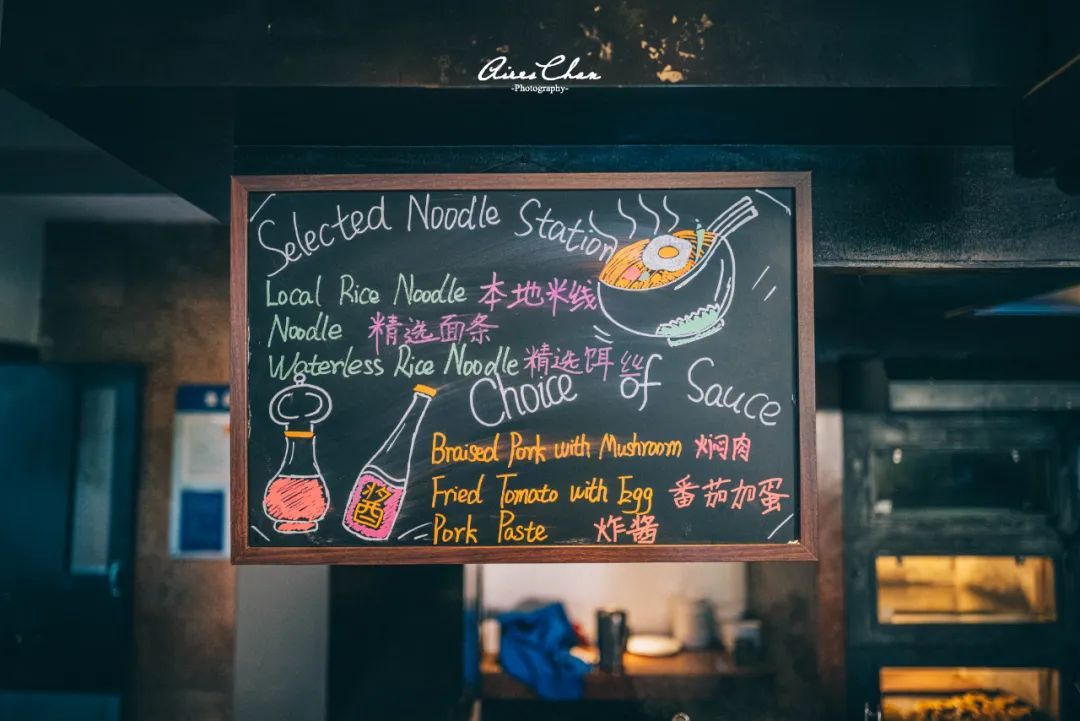 Aires Chan
-Photography-
Selected Noodle Station
Local Rice Noodle 本地米线
Noodle 精选面条
Waterless Rice Noodle 精选饵丝
Choice of Sauce
Braised Pork with Mushroom 焖肉
Fried Tomato with Egg 番茄加蛋
Pork Paste 炸酱
酱